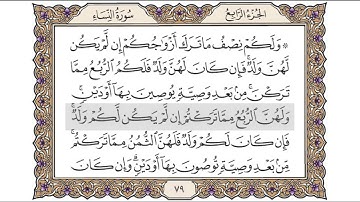 الجزء الرابع
سورة النساء
۞ وَلَكُمْ نِصْفُ مَا تَرَكَ أَزْوَٰجُكُمْ إِن لَّمْ يَكُن
لَّهُنَّ وَلَدٌ ۚ فَإِن كَانَ لَهُنَّ وَلَدٌ فَلَكُمُ ٱلرُّبُعُ مِمَّا
تَرَكْنَ ۚ مِنۢ بَعْدِ وَصِيَّةٍ يُوصِينَ بِهَآ أَوْ دَيْنٍ ۚ
وَلَهُنَّ ٱلرُّبُعُ مِمَّا تَرَكْتُمْ إِن لَّمْ يَكُن لَّكُمْ وَلَدٌ ۚ
فَإِن كَانَ لَكُمْ وَلَدٌ فَلَهُنَّ ٱلثُّمُنُ مِمَّا تَرَكْتُم ۚ
مِّنۢ بَعْدِ وَصِيَّةٍ تُوصُونَ بِهَآ أَوْ دَيْنٍ ۗ وَإِن كَانَ
٧٩